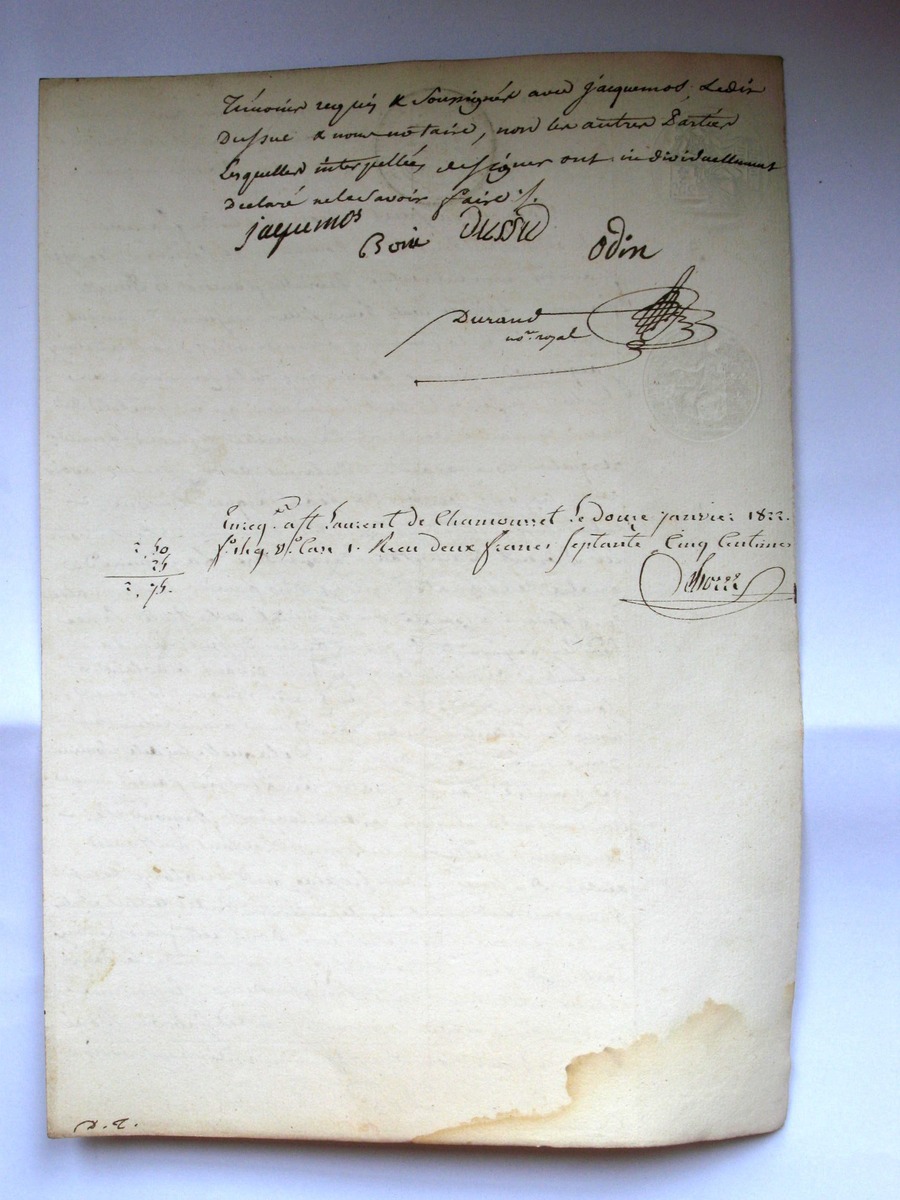 Témoins requis & Soussignés avec jacquemos, Ledit
Dussuc & nous notaire, non les autres Parties
Lesquelles interpellées de signer ont individuellement
declaré ne le Savoir faire ./.
jaquemos
Boiie Dussuc Odin
Durand
no.re royal
Enreg. a St Laurent de Chamousset Le douze janvier 1822.
f.o Case 1. Recu deux francs Septante Cinq Centimes
2, 50
25
2, 75.
D. T.